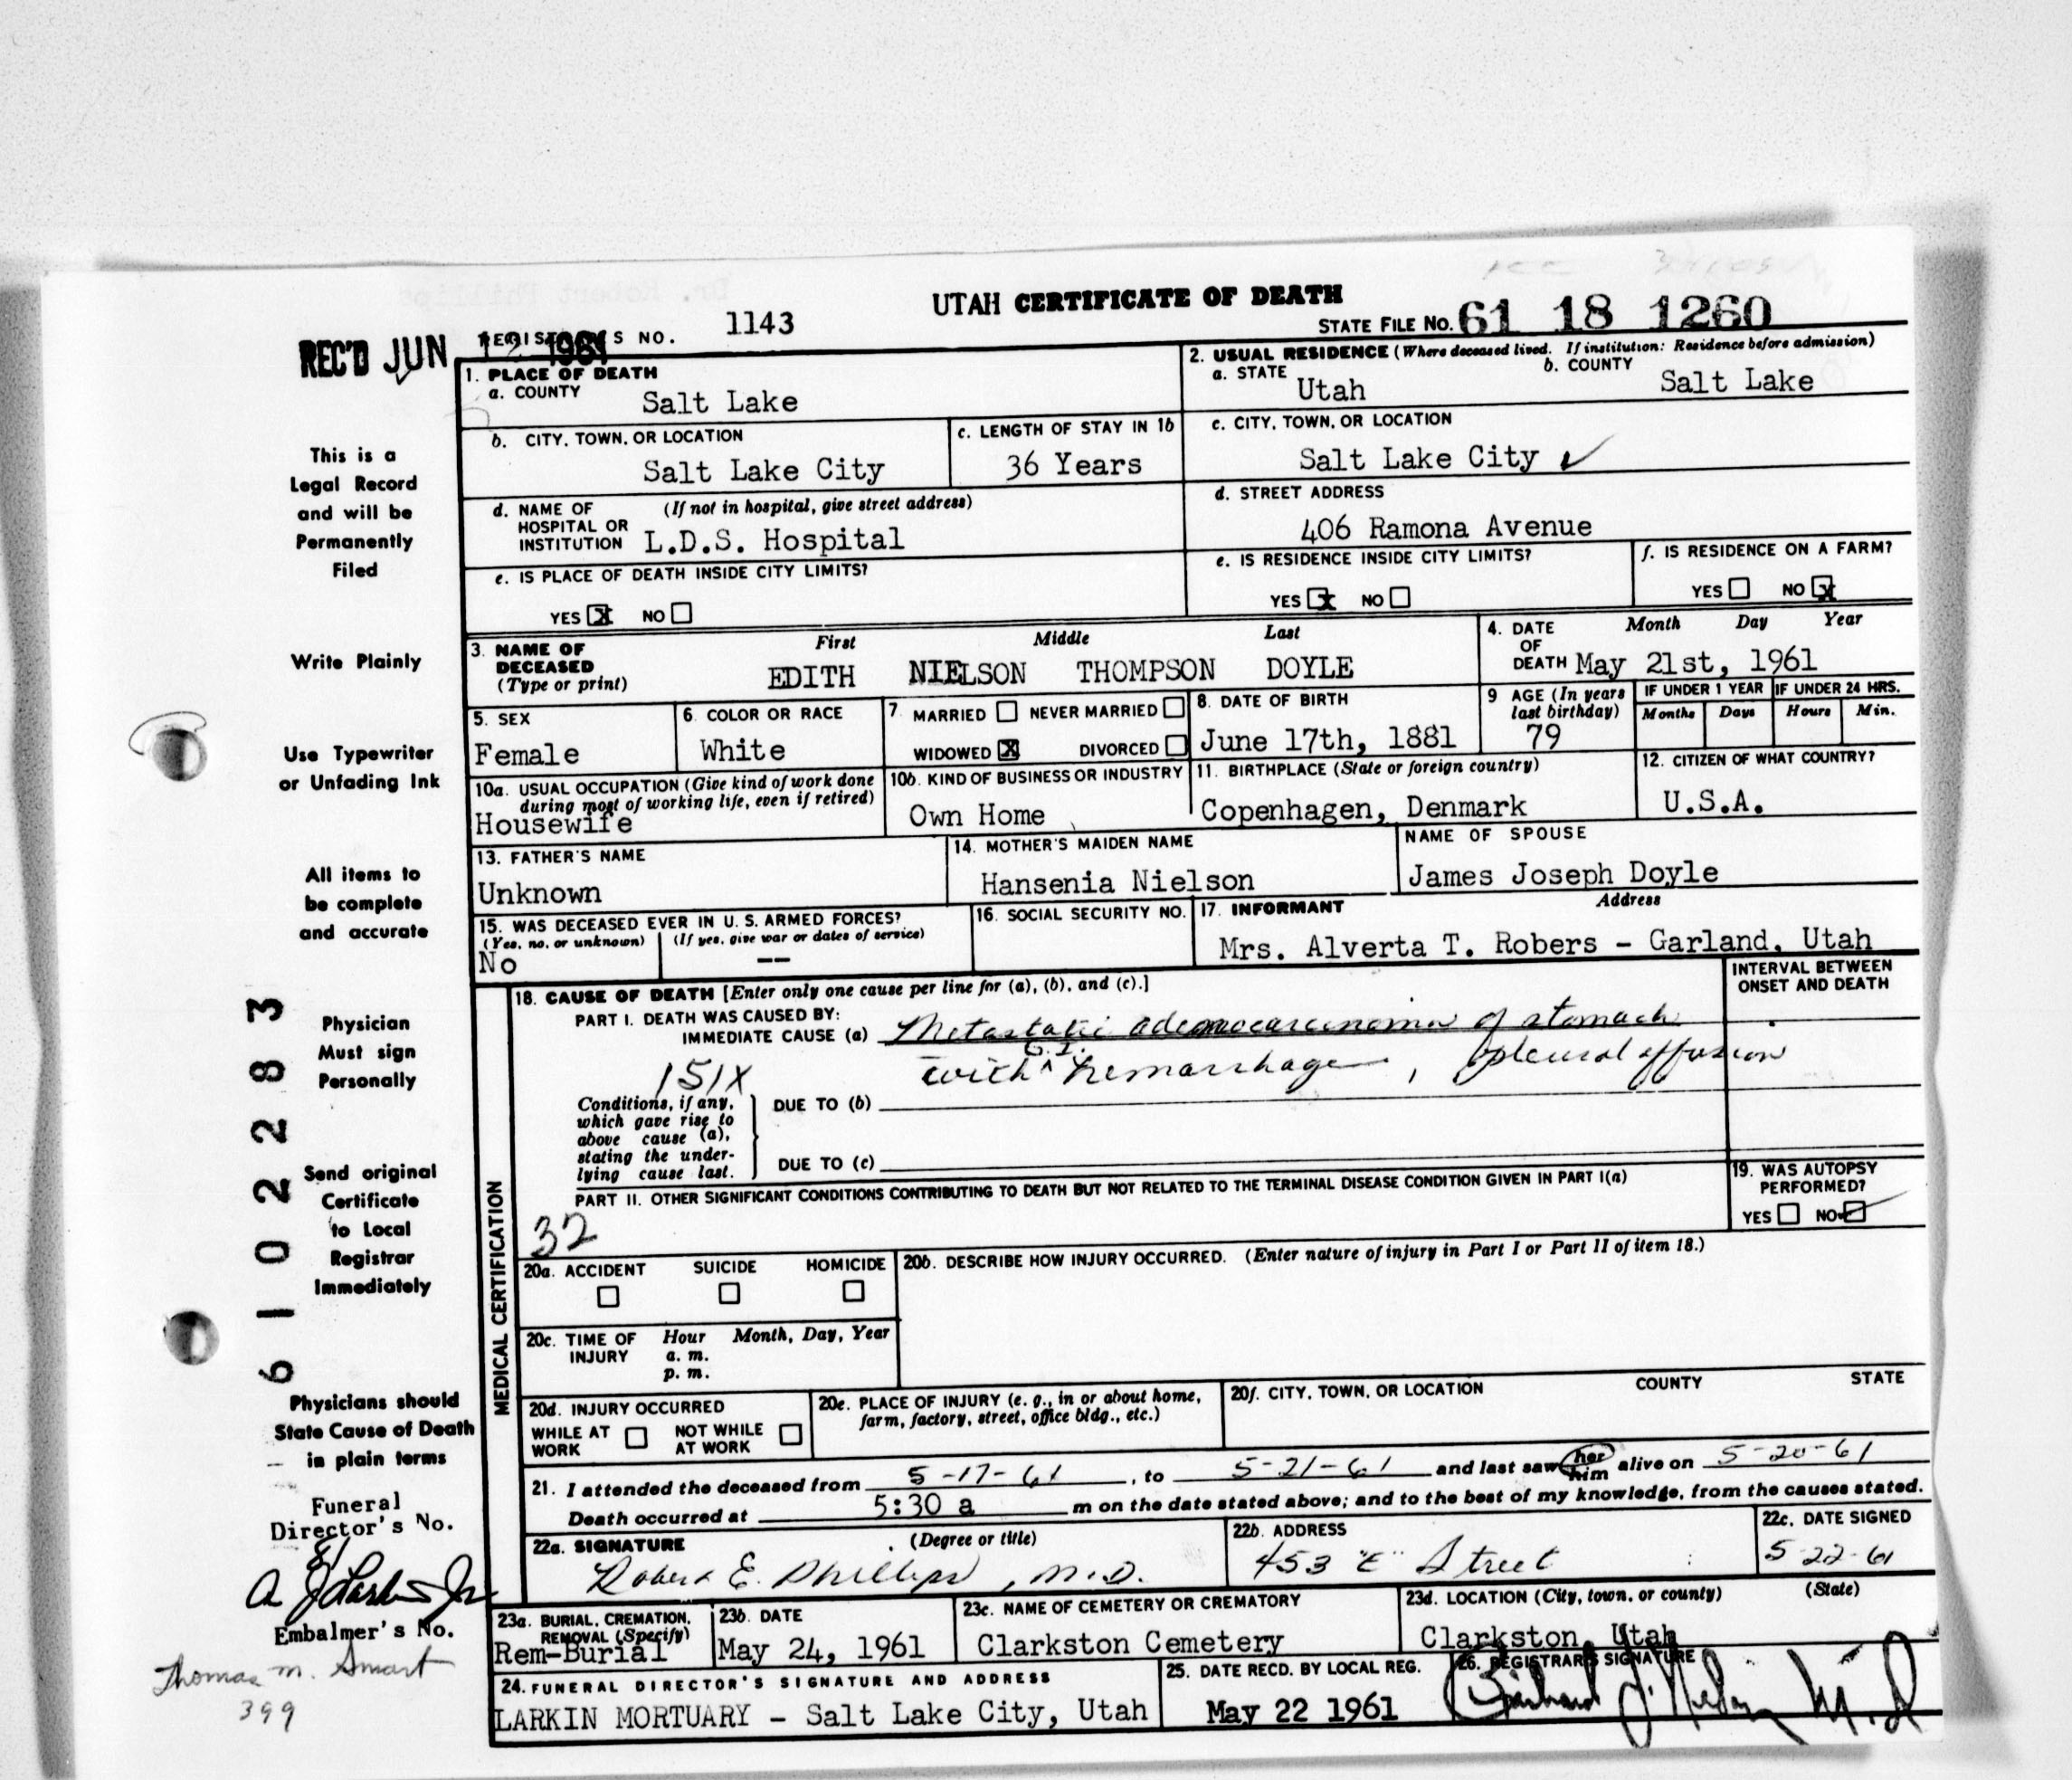 UTAH CERTIFICATE OF DEATH
REC'D JUN 12 1961
REGISTRAR'S NO. 1143
STATE FILE No. 61 18 1260
1. PLACE OF DEATH
a. COUNTY Salt Lake
2. USUAL RESIDENCE (Where deceased lived. If institution: Residence before admission)
a. STATE Utah b. COUNTY Salt Lake
b. CITY, TOWN, OR LOCATION Salt Lake City
c. LENGTH OF STAY IN 1b 36 Years
c. CITY, TOWN, OR LOCATION Salt Lake City
d. NAME OF HOSPITAL OR INSTITUTION (If not in hospital, give street address) L.D.S. Hospital
d. STREET ADDRESS 406 Ramona Avenue
e. IS PLACE OF DEATH INSIDE CITY LIMITS?
YES X NO
e. IS RESIDENCE INSIDE CITY LIMITS?
YES X NO
f. IS RESIDENCE ON A FARM?
YES NO X
3. NAME OF DECEASED (Type or print)
First Middle Last
EDITH NIELSON THOMPSON DOYLE
4. DATE OF DEATH Month Day Year
May 21st, 1961
5. SEX Female
6. COLOR OR RACE White
7. MARRIED NEVER MARRIED
WIDOWED X DIVORCED
8. DATE OF BIRTH June 17th, 1881
9 AGE (In years last birthday) 79
IF UNDER 1 YEAR Months Days
IF UNDER 24 HRS. Hours Min.
10a. USUAL OCCUPATION (Give kind of work done during most of working life, even if retired)
Housewife
10b. KIND OF BUSINESS OR INDUSTRY Own Home
11. BIRTHPLACE (State or foreign country) Copenhagen, Denmark
12. CITIZEN OF WHAT COUNTRY? U.S.A.
13. FATHER'S NAME Unknown
14. MOTHER'S MAIDEN NAME Hansenia Nielson
NAME OF SPOUSE James Joseph Doyle
15. WAS DECEASED EVER IN U. S. ARMED FORCES?
(Yes, no, or unknown) No (If yes, give war or dates of service) --
16. SOCIAL SECURITY NO.
17. INFORMANT Address
Mrs. Alverta T. Robers - Garland, Utah
MEDICAL CERTIFICATION
18. CAUSE OF DEATH [Enter only one cause per line for (a), (b), and (c).]
INTERVAL BETWEEN ONSET AND DEATH
PART I. DEATH WAS CAUSED BY:
IMMEDIATE CAUSE (a) Metastatic adenocarcinoma of stomach
with G.I. hemorrhage, pleural effusion
151X
Conditions, if any, which gave rise to above cause (a), stating the underlying cause last.
DUE TO (b)
DUE TO (c)
PART II. OTHER SIGNIFICANT CONDITIONS CONTRIBUTING TO DEATH BUT NOT RELATED TO THE TERMINAL DISEASE CONDITION GIVEN IN PART I(a)
32
19. WAS AUTOPSY PERFORMED?
YES NO
20a. ACCIDENT SUICIDE HOMICIDE
20b. DESCRIBE HOW INJURY OCCURRED. (Enter nature of injury in Part I or Part II of item 18.)
20c. TIME OF INJURY Hour Month, Day, Year
a. m.
p. m.
20d. INJURY OCCURRED
WHILE AT WORK NOT WHILE AT WORK
20e. PLACE OF INJURY (e. g., in or about home, farm, factory, street, office bldg., etc.)
20f. CITY, TOWN, OR LOCATION COUNTY STATE
21. I attended the deceased from 5-17-61, to 5-21-61 and last saw her him alive on 5-20-61
Death occurred at 5:30 a m on the date stated above; and to the best of my knowledge, from the causes stated.
22a. SIGNATURE (Degree or title)
Robert E. Phillips, M.D.
22b. ADDRESS 453 "E" Street
22c. DATE SIGNED 5-22-61
23a. BURIAL, CREMATION, REMOVAL (Specify) Rem-Burial
23b. DATE May 24, 1961
23c. NAME OF CEMETERY OR CREMATORY Clarkston Cemetery
23d. LOCATION (City, town, or county) (State)
Clarkston, Utah
24. FUNERAL DIRECTOR'S SIGNATURE AND ADDRESS
LARKIN MORTUARY - Salt Lake City, Utah
25. DATE RECD. BY LOCAL REG. May 22 1961
26. REGISTRAR'S SIGNATURE
This is a
Legal Record
and will be
Permanently
Filed
Write Plainly
Use Typewriter
or Unfading Ink
All items to
be complete
and accurate
Physician
Must sign
Personally
Send original
Certificate
to Local
Registrar
Immediately
Physicians should
State Cause of Death
in plain terms
Funeral
Director's No.
81
Embalmer's No.
Thomas M. Smart
399
6102283